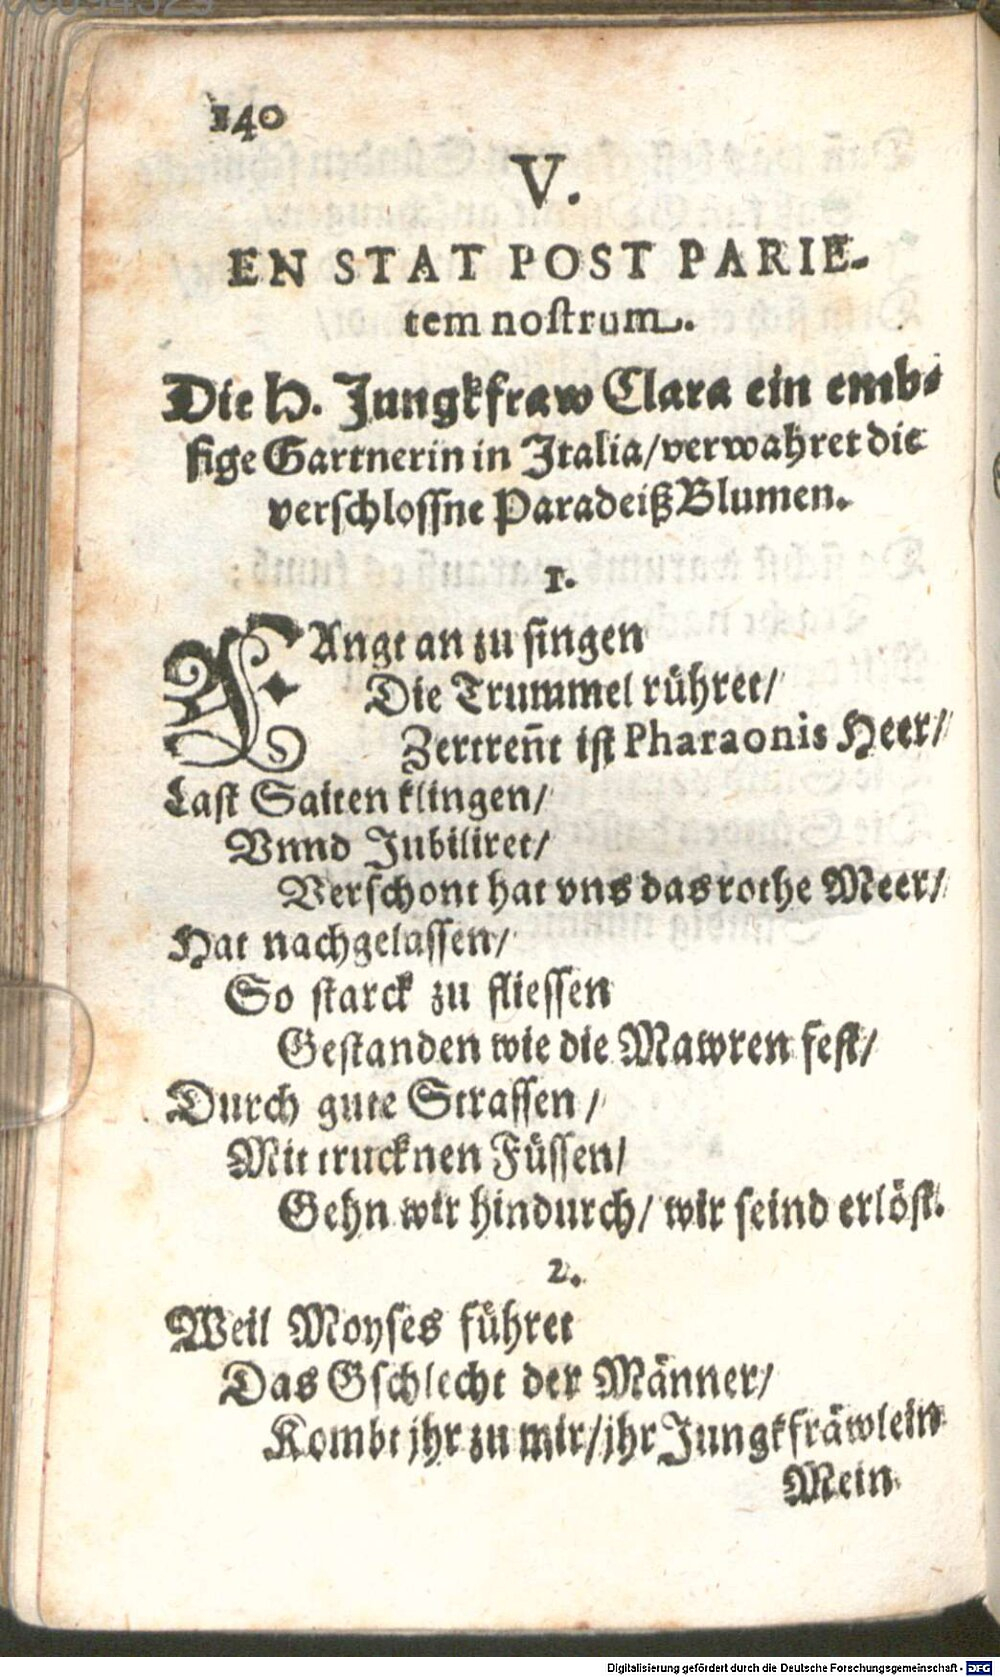 140
V.
EN STAT POST PARIE-
tem noſtrum.
Die H. Jungkfraw Clara ein emb-
ſige Gartnerin in Italia/verwahret die
verſchloſſne Paradeiß Blumen.
1.
FAngt an zu ſingen
Die Trummel rühret/
Zertreñt iſt Pharaonis Heer/
Laſt Saiten klingen/
Vnnd Jubiliret/
Verſchont hat vns das rothe Meer/
Hat nachgelaſſen/
So ſtarck zu flieſſen
Geſtanden wie die Mawren feſt/
Durch gute Straſſen/
Mit trucknen Füſſen/
Gehn wir hindurch/ wir ſeind erlöſt.
2.
Weil Moyſes führet
Das Gſchlecht der Männer/
Kombt jhr zu mir/jhr Jungkfräwlein
Mein
Digitalisierung gefördert durch die Deutsche Forschungsgemeinschaft - DFG